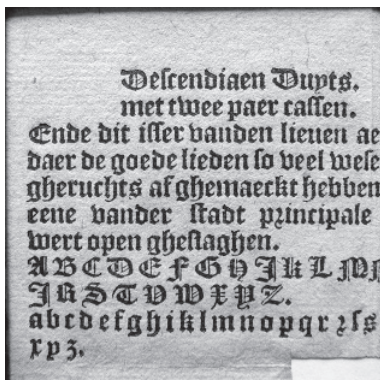 Descendiaen Duyts.
met twee paer cassen.
Ende dit isser vanden lieuen ae
daer de goede lieden so veel wese
gheruchts af ghemaeckt hebben
eene vander stadt principale
wert open gheslaghen.
A B C D E F G H I K L M
R S T V W X Y Z.
a b c d e f g h i k l m n o p q r ꝛ ſ s
x y z.